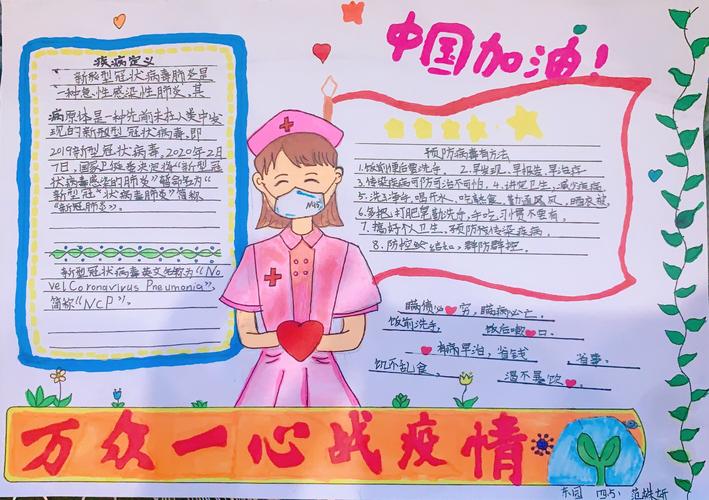 中国加油！
疾病定义
新型冠状病毒肺炎是
一种急性感染性肺炎，其
病原体是一种先前未在人类中发
现的新型冠状病毒，即
2019新型冠状病毒。2020年2月
7日，国家卫健委决定将“新型冠
状病毒感染的肺炎”暂命名为“
新型冠状病毒肺炎”简称
“新冠肺炎”。
新型冠状病毒英文名称为“No
vel Coronavirus Pneumonia”，
简称“NCP”。
N95
预防病毒有方法
1.饭前便后要洗手 2.早发现，早报告，早治疗
3.传染疾病可防可治不可怕。4.讲究卫生，减少疾病
5.洗净手，喝开水，吃熟食，勤通风，晒衣被
7.搞好个卫生，预防传染疾病。
群防群控。
穷，瞒病必亡。
饭前洗手， 饭后漱口。
有病早治，省钱 省事。
饥不乱食， 渴不暴饮
万众一心战疫情